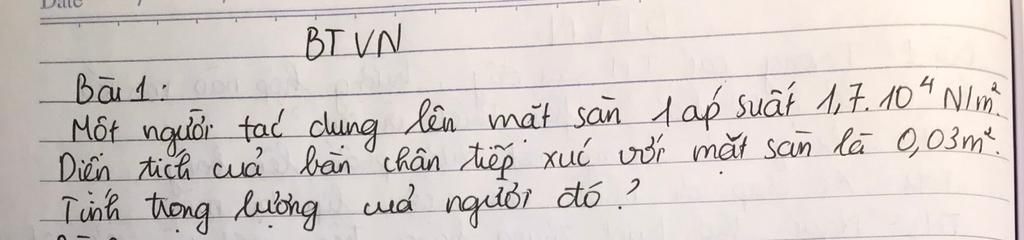 Date
BTVN
Bài 1:
Một người tác dụng lên mặt sàn 1 áp suất 1,7.10⁴ N/m².
Diện tích của bàn chân tiếp xúc với mặt sàn là 0,03m².
Tính trọng lượng của người đó?